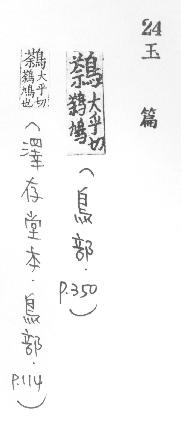 24 玉篇
鷋 大乎切 鳩
(鳥部．P.350)
鷋 大乎切 鳩也
(澤存堂本．鳥部．P.114)